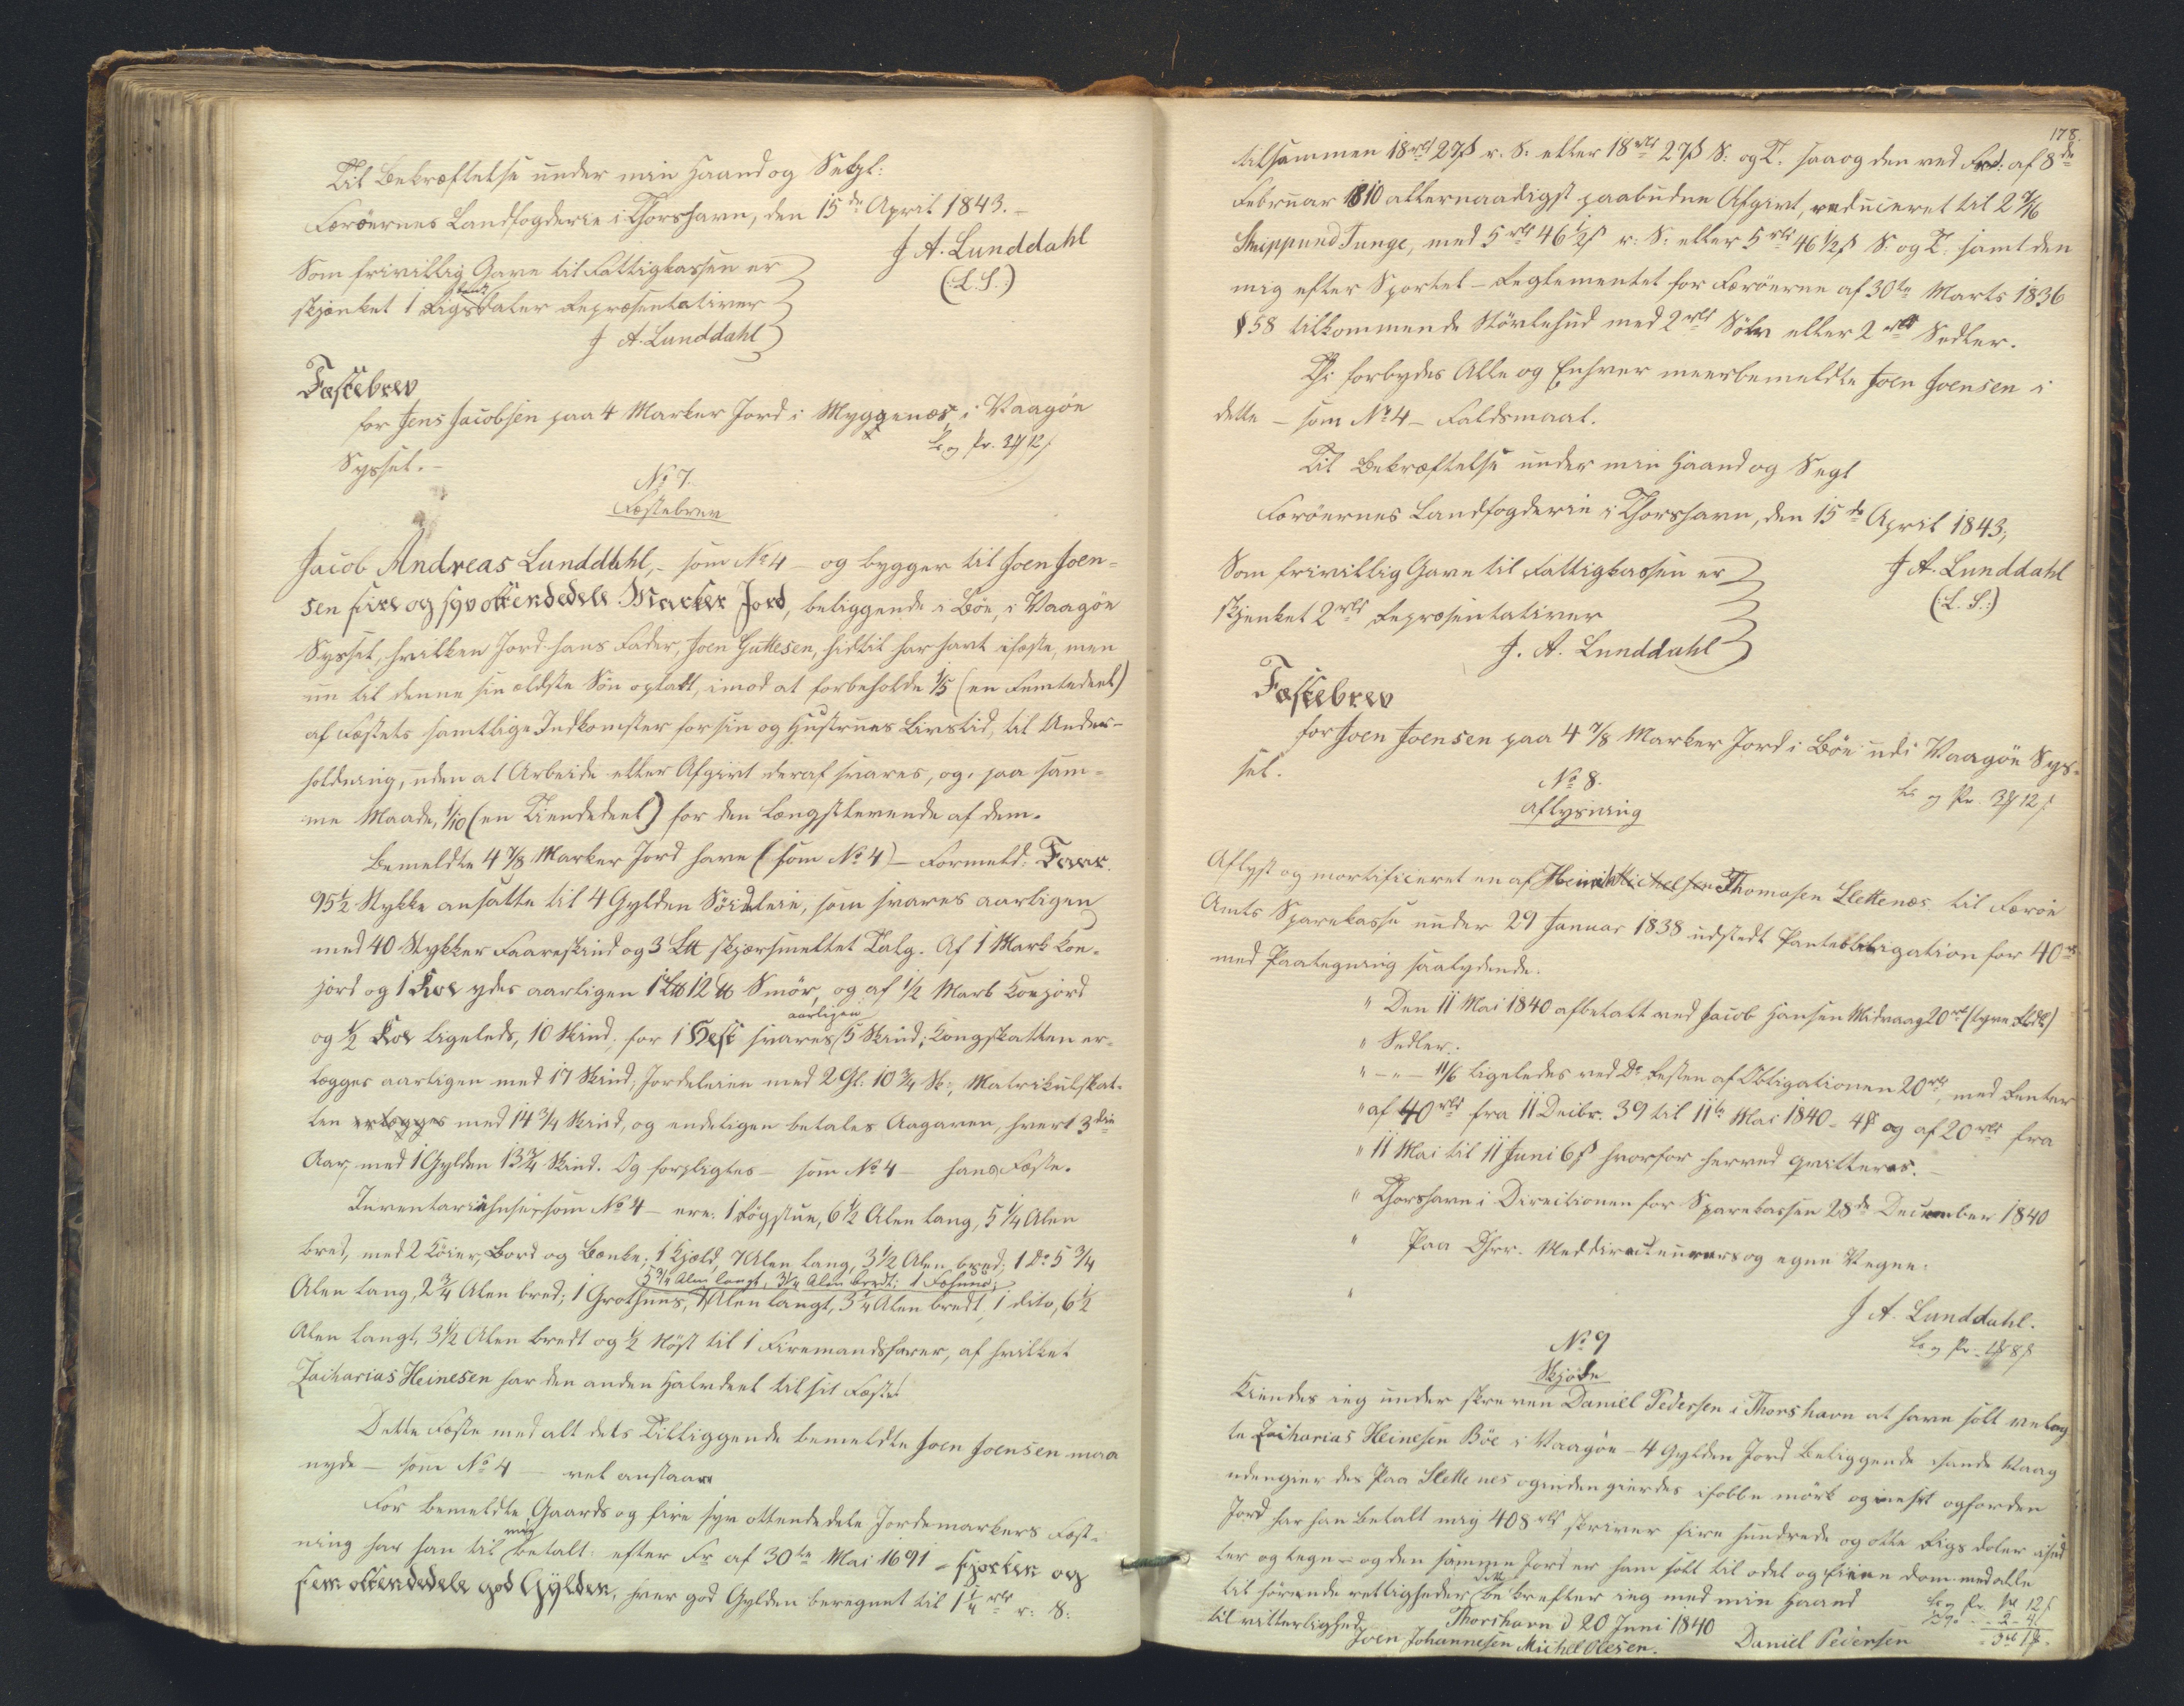 Til Bekræftelse under min Haand og Segl:
Færöernes Landfogderie i Thorshavn, den 15de April 1843.-
J A. Lunddahl
(:L.S.:)
Som frivillig Gave til Fattigkassen er
skjænket 1 Rigsbankdaler Repræsentativer
J A. Lunddahl
Fæstebrev
for Jens Jacobsen paa 4 Marker Jord i Myggenæs, i Vaagöe
Syssel.-
No 7.
Fæstebrev
Jacob Andreas Lunddahl,- som No 4 - og bygger til Joen Joen=
sen fire og syv ottendedele Marker Jord, beliggende i Böe, i Vaagöe
Syssel, hvilken Jord hans Fader, Joen Guttesen, hidtil har havt i fæste, men
nu til denne sin ældste Sön opladt, imod at forbeholde 1/5 (en Femtedeel)
af Fæstets samtlige Indkomster for sin og Hustrues Livstid, til Under-
holdning, uden at Arbeide eller Afgivt deraf svares, og, paa sam=
me Maade, 1/10 (en Tiendedeel) for den Længstlevende af dem.
Bemeldte 4 7/8 Marker Jord have (som No 4) - Formeld: Faar.
95 1/2 Stykke ansatte til 4 Gylden Söideleie, som svares aarligen
med 40 Stykker Faareskind og 3 L℔ skjærsmeltet Talg. Af 1 Mark Koe-
jord og 1 Koe ydes aarligen 1 L℔ 12 ℔ Smör, og af 1/2 Mark Koejord
og 1/2 Koe ligeleds, 10 Skind; for 1 Hest svares aarligen 5 Skind; Kongskatten er-
lægges aarligen med 17 Skind, Jordeleien med 2 Gl: 10 3/4 Sk:, Matrikulskat-
ten erlægges med 14 3/4 Skind, og endeligen betales Aagaven, hvert 3die
Aar, med 1 Gylden 13 3/4 Skind. Og forpligtes - som No 4 - hans Fæste.
Inventariehuse, som No 4 - ere: 1 Rögstue, 6 1/2 Alen lang, 5 1/4 Alen
bred, med 2 Köier, Bord og Bænke; 1 Hjæld, 7 Alen lang, 3 1/2 Alen bred; 1 Do 5 3/4
Alen lang, 2 3/4 Alen bred; 1 Grothuus, 5 3/4 Alen langt, 3 1/4 Alen bredt; 1 Fæhuus; 7 Alen langt, 3 1/4 Alen bredt, 1 dito, 6 1/2
Alen langt, 3 1/2 Alen bredt og 1/2 Nöst til 1 Firemandsfarer, af hvilket
Zacharias Heinesen har den anden Halvdeel til sit Fæste
Dette Fæste med alt dets Tilliggende bemeldte Joen Joensen maa
nyde - som No 4 - vel anstaae
For bemeldte Gaards og fire syv ottendedele Jordemarkers Fæst=
ning har han til mig betalt: efter Fr af 30te Mai 1691 - fjorten og
fem ottendedele god Gylden, hver god Gylden beregnet til 1 1/4 rbd r: S:
178.
tilsammen 18 rbd 27 ß r. S. eller 18 rbd 27 ß S: og T. saa og den ved Frd: af 8de
Februar 1810 allernaadigst paabudne Afgivt, reduceret til 2 7/16
Skippund Tunge, med 5 rbd 46 1/2 ß r: S: eller 5 rbd 46 1/2 ß S: og T. samt den
mig efter Sportel-Reglementet for Færöerne af 30te Marts 1836
§ 58 tilkommende Stövlehud med 2 rbd Sölv eller 2 rbd Sedler.
Thi forbydes Alle og Enhver meerbemeldte Joen Joensen i
dette - som No 4 - Faldsmaal.
Til Bekræftelse under min Haand og Segl
Færöernes Landfogderie i Thorshavn, den 15de April 1843,
J A. Lunddahl
(:L.S.:)
Som frivillig Gave til Fattigkassen er
skjenket 2 rbd Repræsentativer
J. A. Lunddahl
Fæstebrev
for Joen Joensen paa 4 7/8 Marker Jord i Böe udi Vaagöe Sys=
sel.
No 8.
Aflysning
Aflyst og mortificeret en af Thomasen Slettenæs til Færöe
Amts Sparekasse under 29 Januar 1838 udstedt Panteobligation for 40 rbd
med Paategning saalydende.
" Den 11 Mai 1840 afbetalt ved Jacob Hansen Midvaag 20 rbd (tyve Rbd)
" Sedler.
" - " - 11/6 ligeledes ved Do Resten af Obligationen 20 rbd, med Renter
" af 40 rbd fra 11 Decbr. 39 til 11te Mai 1840 - 4 ß og af 20 rbd fra
" 11 Mai til 11 Juni 6 ß hvorfor herved qvitteres. -
" Thorshavn i Directionen for Sparekassen 28de December 1840
" Paa Hrr. Meddirecteurers og egne Vegne:
"
J A. Lunddahl.
No 9
Skjöde
Kiendes ieg under skreven Daniel Pedersen i Thorshavn at have solt velag
te Zacharias Heinesen Böe i Vaagöe - 4 Gylden Jord Beliggende i Sande Vaag
udengierdes Paa Slettenes og inden gierdes og for den
Jord har han betalt mig 408 rbd skriver fire hundrede og otte Rigs daler i Sed
ler og tegn - og den samme Jord er ham solt til odel og eiene dom med alle
til hörende rettigheder dette be krefter ieg med min Haand
Thorshavn d 20 Juni 1840
til vitterlighed
Daniel Pedersen
Joen Johannesen Michel Olesen.